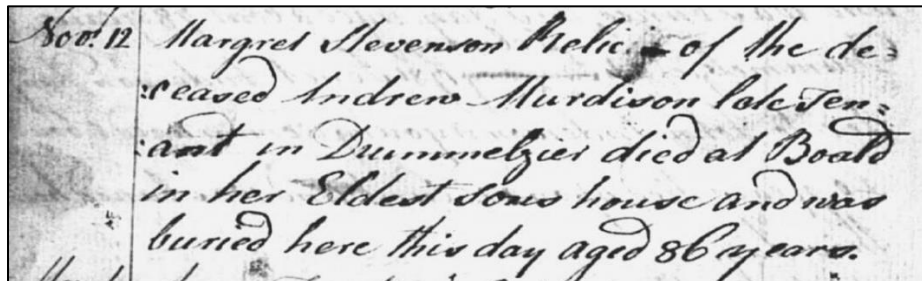 Nov.r 12 Margret Stevenson Relic - of the de=
:ceased Andrew Murdison late Ten=
:ant in Drummelzier died at Boald
in her Eldest sons house and was
buried here this day aged 86 years.